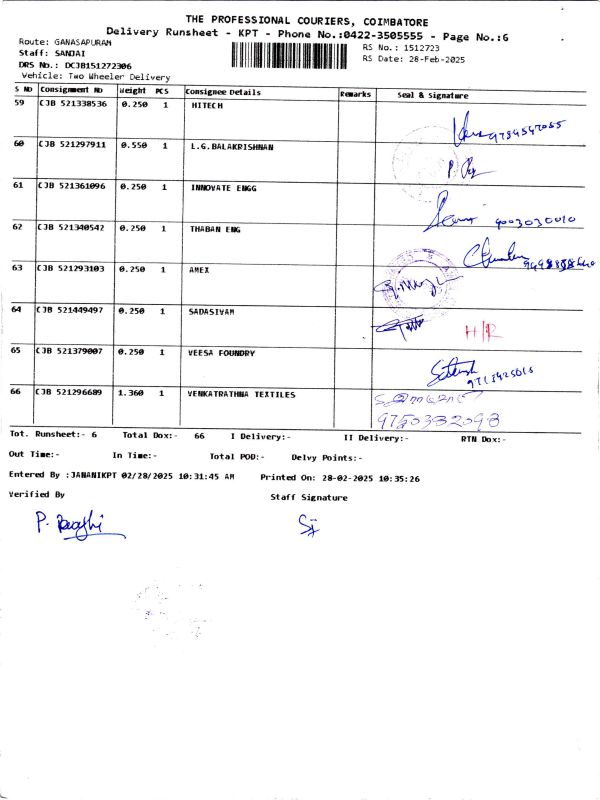 THE PROFESSIONAL COURIERS, COIMBATORE
Delivery Runsheet - KPT - Phone No.:0422-3505555 - Page No.:6
Route: GANASAPURAM
RS No.: 1512723
Staff: SANJAI
RS Date: 28-Feb-2025
DRS No.: DCJB151272306
Vehicle: Two Wheeler Delivery
S NO Consignment NO Weight PCS Consignee Details Remarks Seal & Signature
59 CJB 521338536 0.250 1 HITECH
60 CJB 521297911 0.550 1 L.G.BALAKRISHNAN
61 CJB 521361096 0.250 1 INNOVATE ENGG
9003030010
62 CJB 521340542 0.250 1 THABAN ENG
63 CJB 521293103 0.250 1 AMEX
64 CJB 521449497 0.250 1 SADASIVAM
H/R
65 CJB 521379007 0.250 1 VEESA FOUNDRY
66 CJB 521296689 1.360 1 VENKATRATHNA TEXTILES
9750332098
Tot. Runsheet:- 6 Total Dox:- 66 I Delivery:- II Delivery:- RTN Dox:-
Out Time:- In Time:- Total POD:- Delvy Points:-
Entered By :JANANIKPT 02/28/2025 10:31:45 AM Printed On: 28-02-2025 10:35:26
Verified By Staff Signature